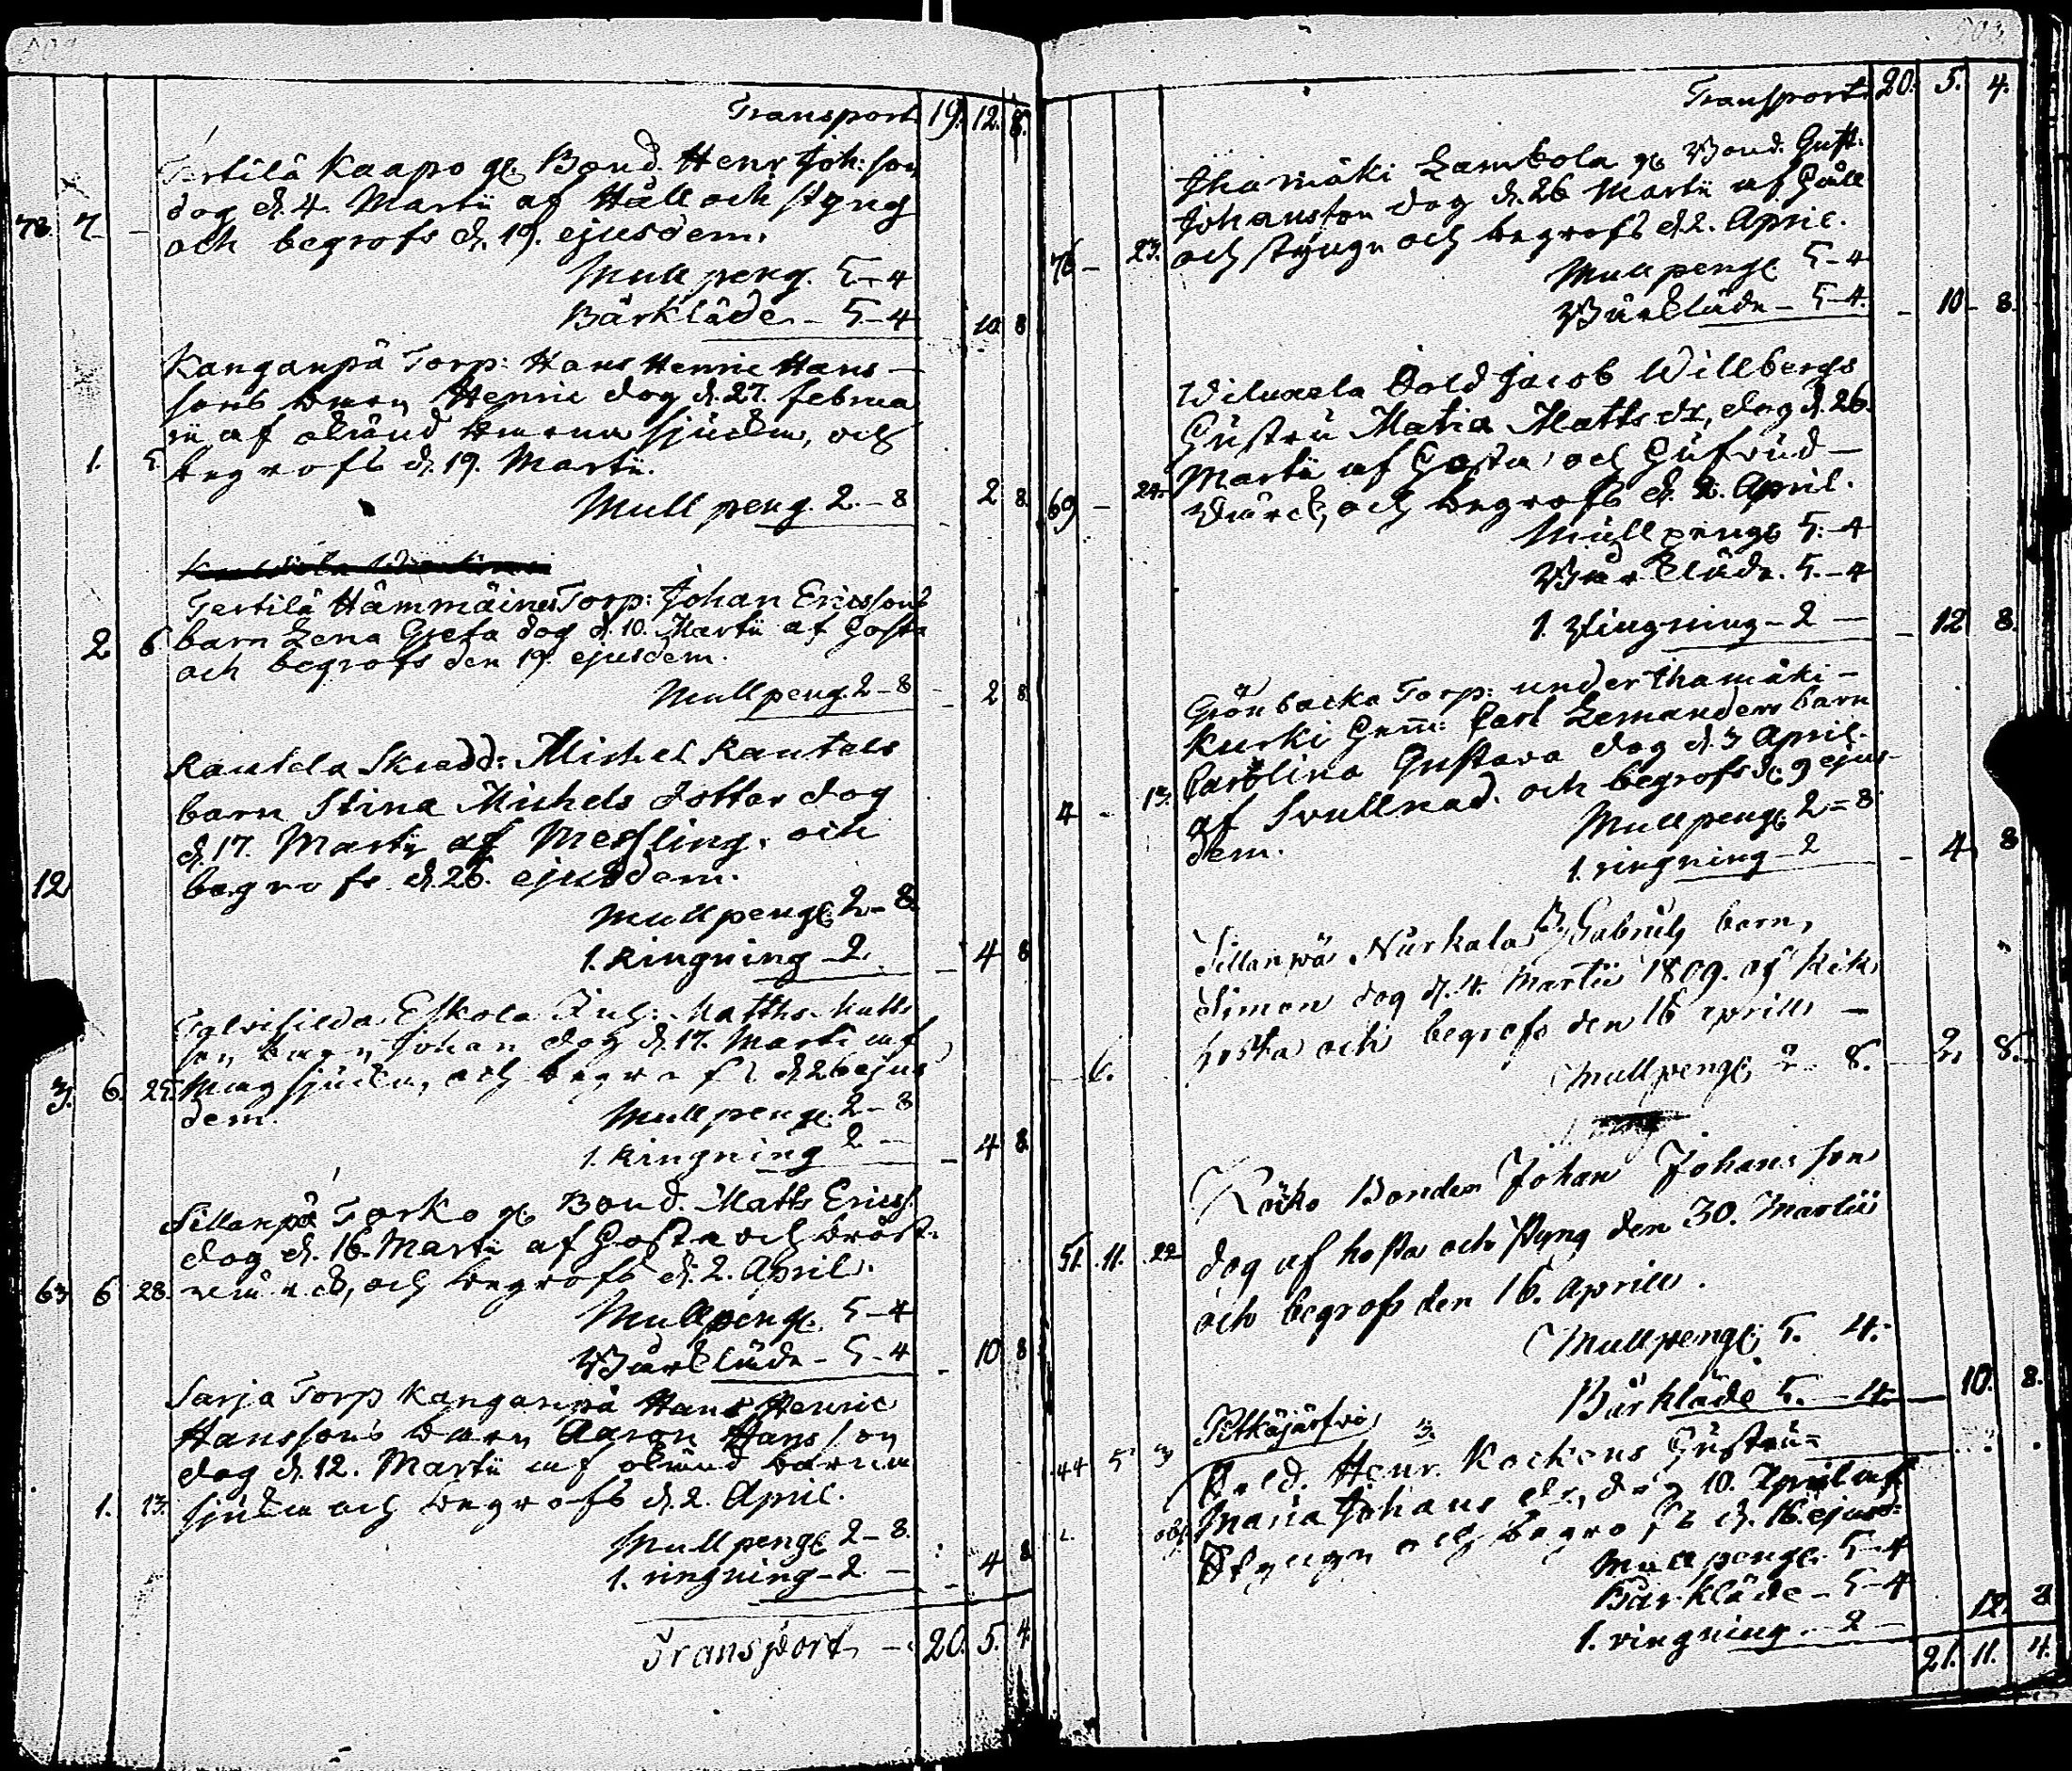 Transport. 19. 12. 8.
Tertilä Kaapo gl. Bond. Henr Joh:son
dog d. 4. Martii af Håll och styng
78. 7. — och begrofs d. 19. ejusdem.
Mull peng. 5-4
Bärkläde - 5-4 10 8
Kanganpä Torp: Hans Henric Hans-
sons barn Henric dog d. 27. februa
rii af okänd barna sjukdom, och
1. 5. begrofs d. 19. Martii.
Mull peng. 2.-8 - 2 8
Tertilä Hämmäinen Torp: Johan Ericssons
2 6 barn Lena Greta dog d. 10. Martii af Hosta
och begrofs den 19. ejusdem.
Mull peng. 2-8 - 2 8
Rautela Skradd: Michel Rautels
barn Stina Michels dotter dog
d. 17. Martii af Messling. och
12 begrofs d. 26. ejusdem.
Mull peng. 2-8.
1. Ringning - 2. - 4 8
Eskola Inh: Matths Matts
son barn Johan dog d. 17. Marti af
3. 6. 25. Mag sjukdom, och begrofs d. 26 ejus
dem. Mull peng. 2-8
1. Ringning 2 - - 4 8
Sillanpä Torko gl Bond. Matts Ericss.
dog d. 16. Martii af Hosta och bröst-
63 6 28. wärck, och begrofs d. 2. April.
Mull peng. 5-4
Bärkläde - 5-4 - 10 8
Sarja Torp Kanganpä Hans Henric
Hanssons barn Aaron Hansson
dog d. 12. Martii af okänd barna
1. 13. sjukdom och begrofs d. 2. April.
Mull peng 2-8.
1. ringning - 2 - - 4 8
Transport - 20. 5. 4.
Transport. 20. 5. 4.
Ihamäki Lambola gl Bond. Gust.
Johansson dog d. 26 Martii af Håll
76 - 23. och stÿngn och begrofs d. 2. April.
Mull peng 5-4
Bärkläde - 5-4. - 10 - 8.
Sold Jacob Willbergs
Hustru Maria Matts dr, dog d. 26.
Martii af Hosta och Hufvud-
69 - 24. wärck, och begrofs d. 2. April.
Mull peng 5.-4
Bärkläde. 5.-4
1. Ringning - 2 - - 12 8.
Grönbacka Torp: under Ihamäki-
Kurki Gem: Carl Lemanders barn
4 - 13. Carolina Gustava dog d. 3 April.
af Svullnad. och begrofs d. 9 ejus-
dem. Mull peng. 2=8
1. ringning - 2 - 4 8
Sillanpä Nurkala B. Gabriels barn,
Simon dog d. 4. Martii 1809. af Kik
6. hosta och begrofs den 16 aprills -
Mullpeng. 2. 8. - 2. 8.
Räiko Bonden Johan Johansson
51. 11. 22 dog af hosta och styng den 30. Martii
och begrofs den 16. Aprills.
Mullpeng. 5. 4.
Bärkläde 5. - 4. - 10. 8.
Pitkäjärfvi
44 5 3 Sold. Henr. Kockens Hustru
Maria Johans dr, dog 10. April af
Styngn och begrofs d. 16. ejusd.
Mull peng. 5-4
Bärkläde - 5-4
1. ringning - 2 - 12. 8
21. 11. 4.